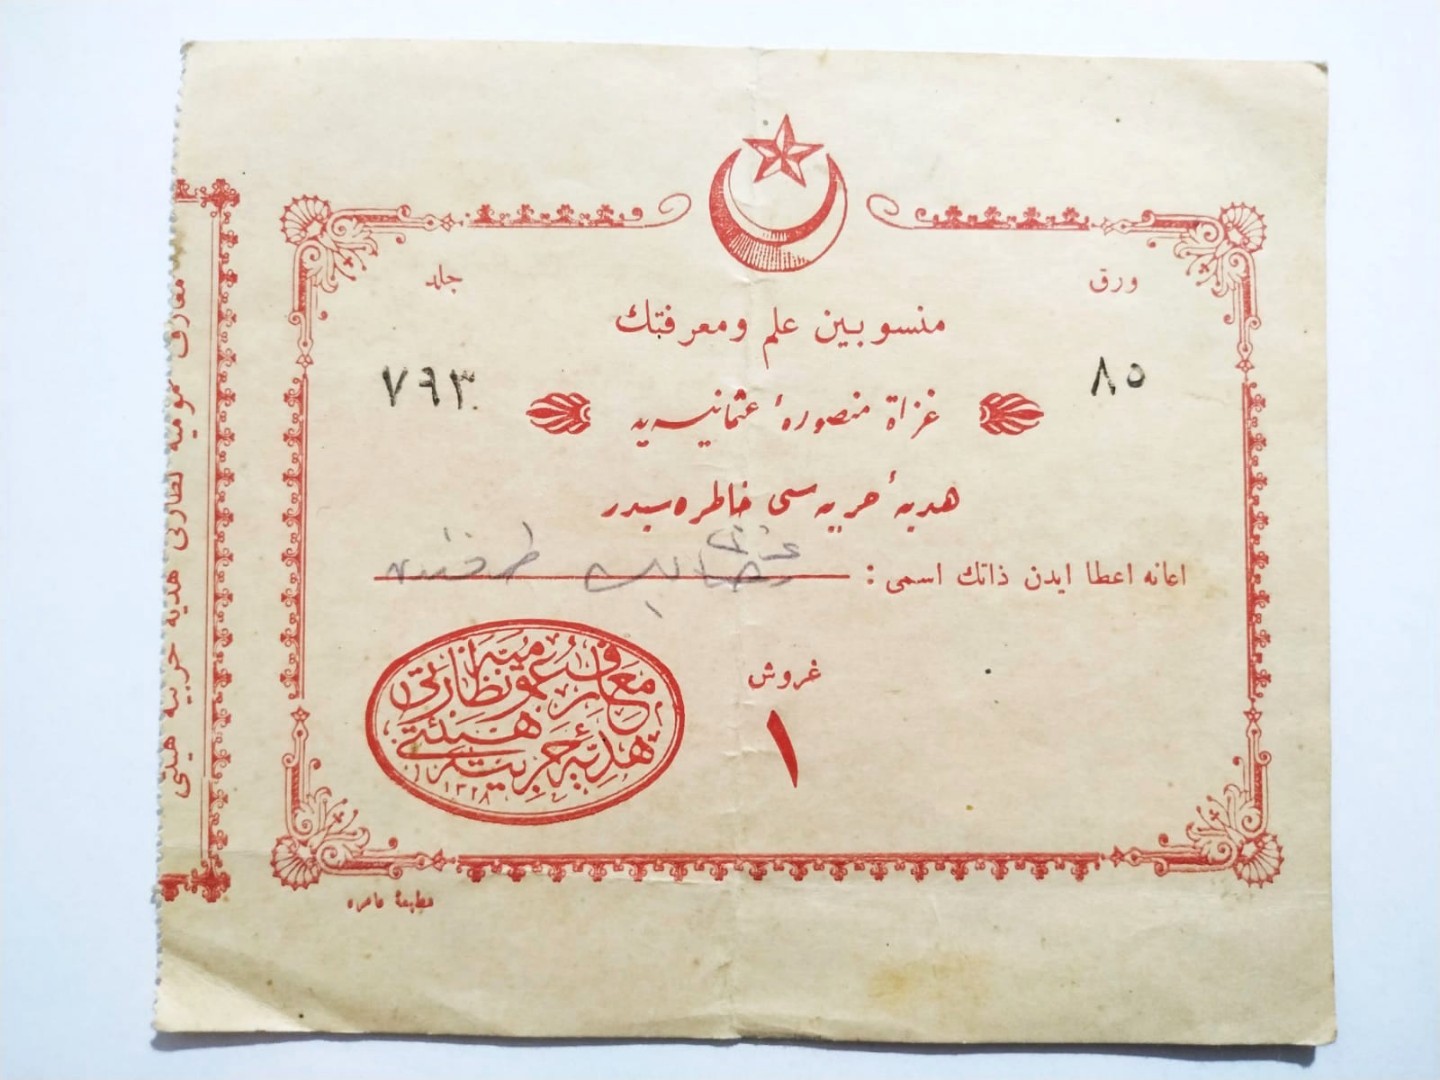 ورق
جلد
منسوبين علم و معرفتك
٨٥
٧٩٣
غزاة منصورهٔ عثمانيه‌يه
هديهٔ حربيه‌سى خاطره‌سيدر
اعانه اعطا ايدن ذاتك اسمى :
طرفندن
غروش
١
معارف عموميه نظارتى
هديهٔ حربيه هيئتى
١٣٢٨
مطبعهٔ عامره
معارف عموميه نظارتى هديهٔ حربيه هيئتى